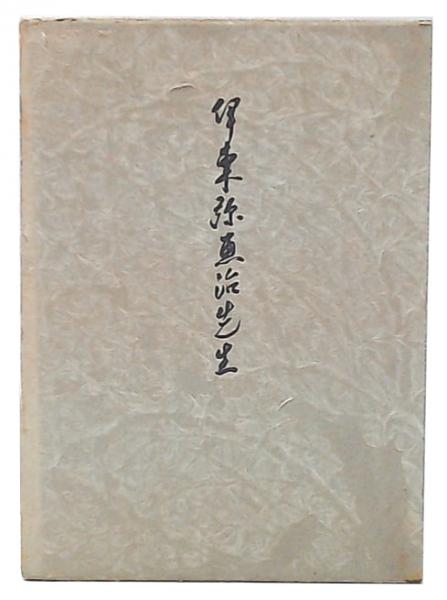 伊東弥恵治先生